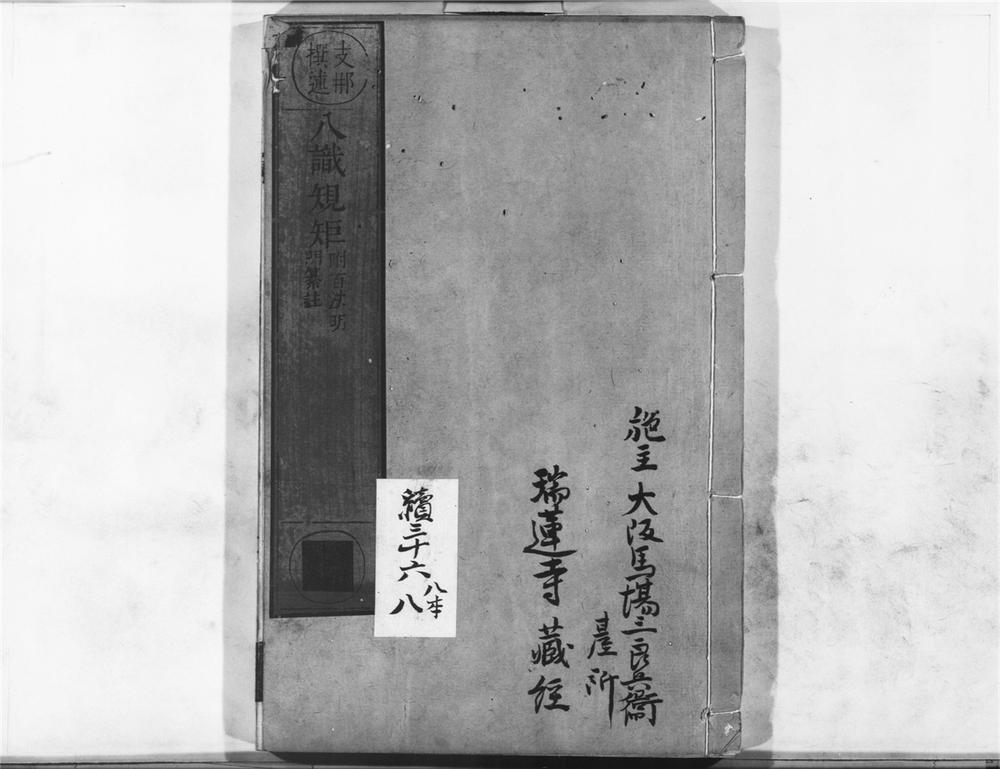 支那
撰述
八識規矩
附百法明
門纂註
施主 大阪馬場三良兵衞
臺所
瑞蓮寺 藏経
續三十六
八本
八